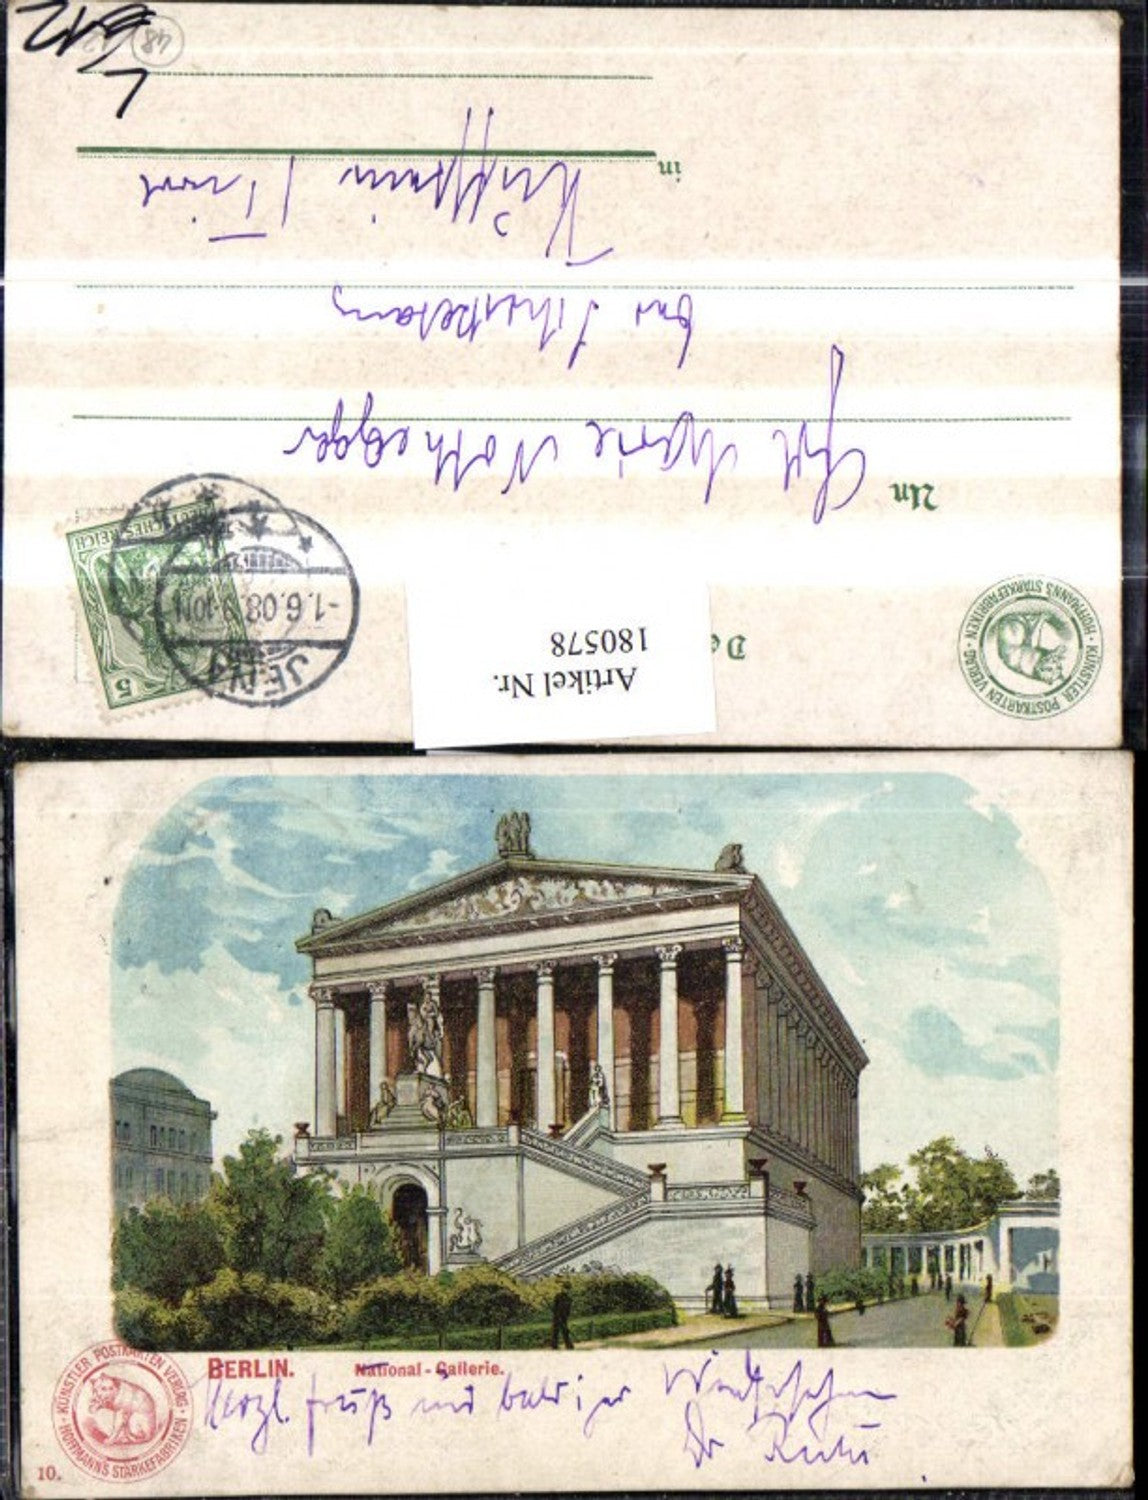 180578
Artikel Nr.
An
Frl. Marie Nothegger
in
Kufstein / Tirol
DEUTSCHES REICH
5
JENA
-1.6.08.9-10N
KÜNSTLER POSTKARTEN VERLAG
HOFFMANN'S STÄRKEFABRIKEN
48
BERLIN.
National-Gallerie.
Herzl. Gruß und baldiges Wiedersehen
KÜNSTLER POSTKARTEN VERLAG
HOFFMANN'S STÄRKEFABRIKEN
10.